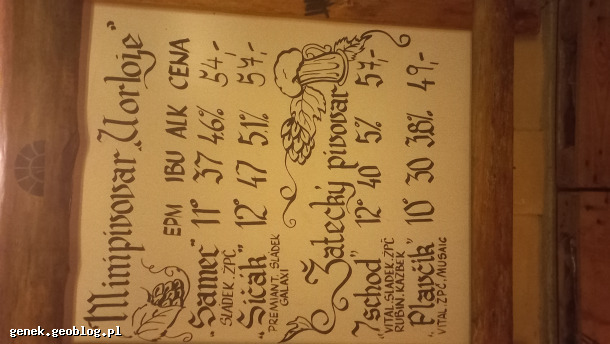 Minipivovar „U orloje“
EPM IBU ALK CENA
„Samec“ 11° 37 4,6% 54,-
SLÁDEK, ZPČ
„Sičák“ 12° 47 5,1% 57,-
PREMIANT, SLÁDEK
GALAXI
Žatecký pivovar
„7schod“ 12° 40 5% 57,-
VITAL, SLÁDEK, ZPČ
RUBÍN, KAZBEK
„Plavčík“ 10° 30 3,8% 49,-
VITAL, ZPČ, MUSAIC
genek.geoblog.pl